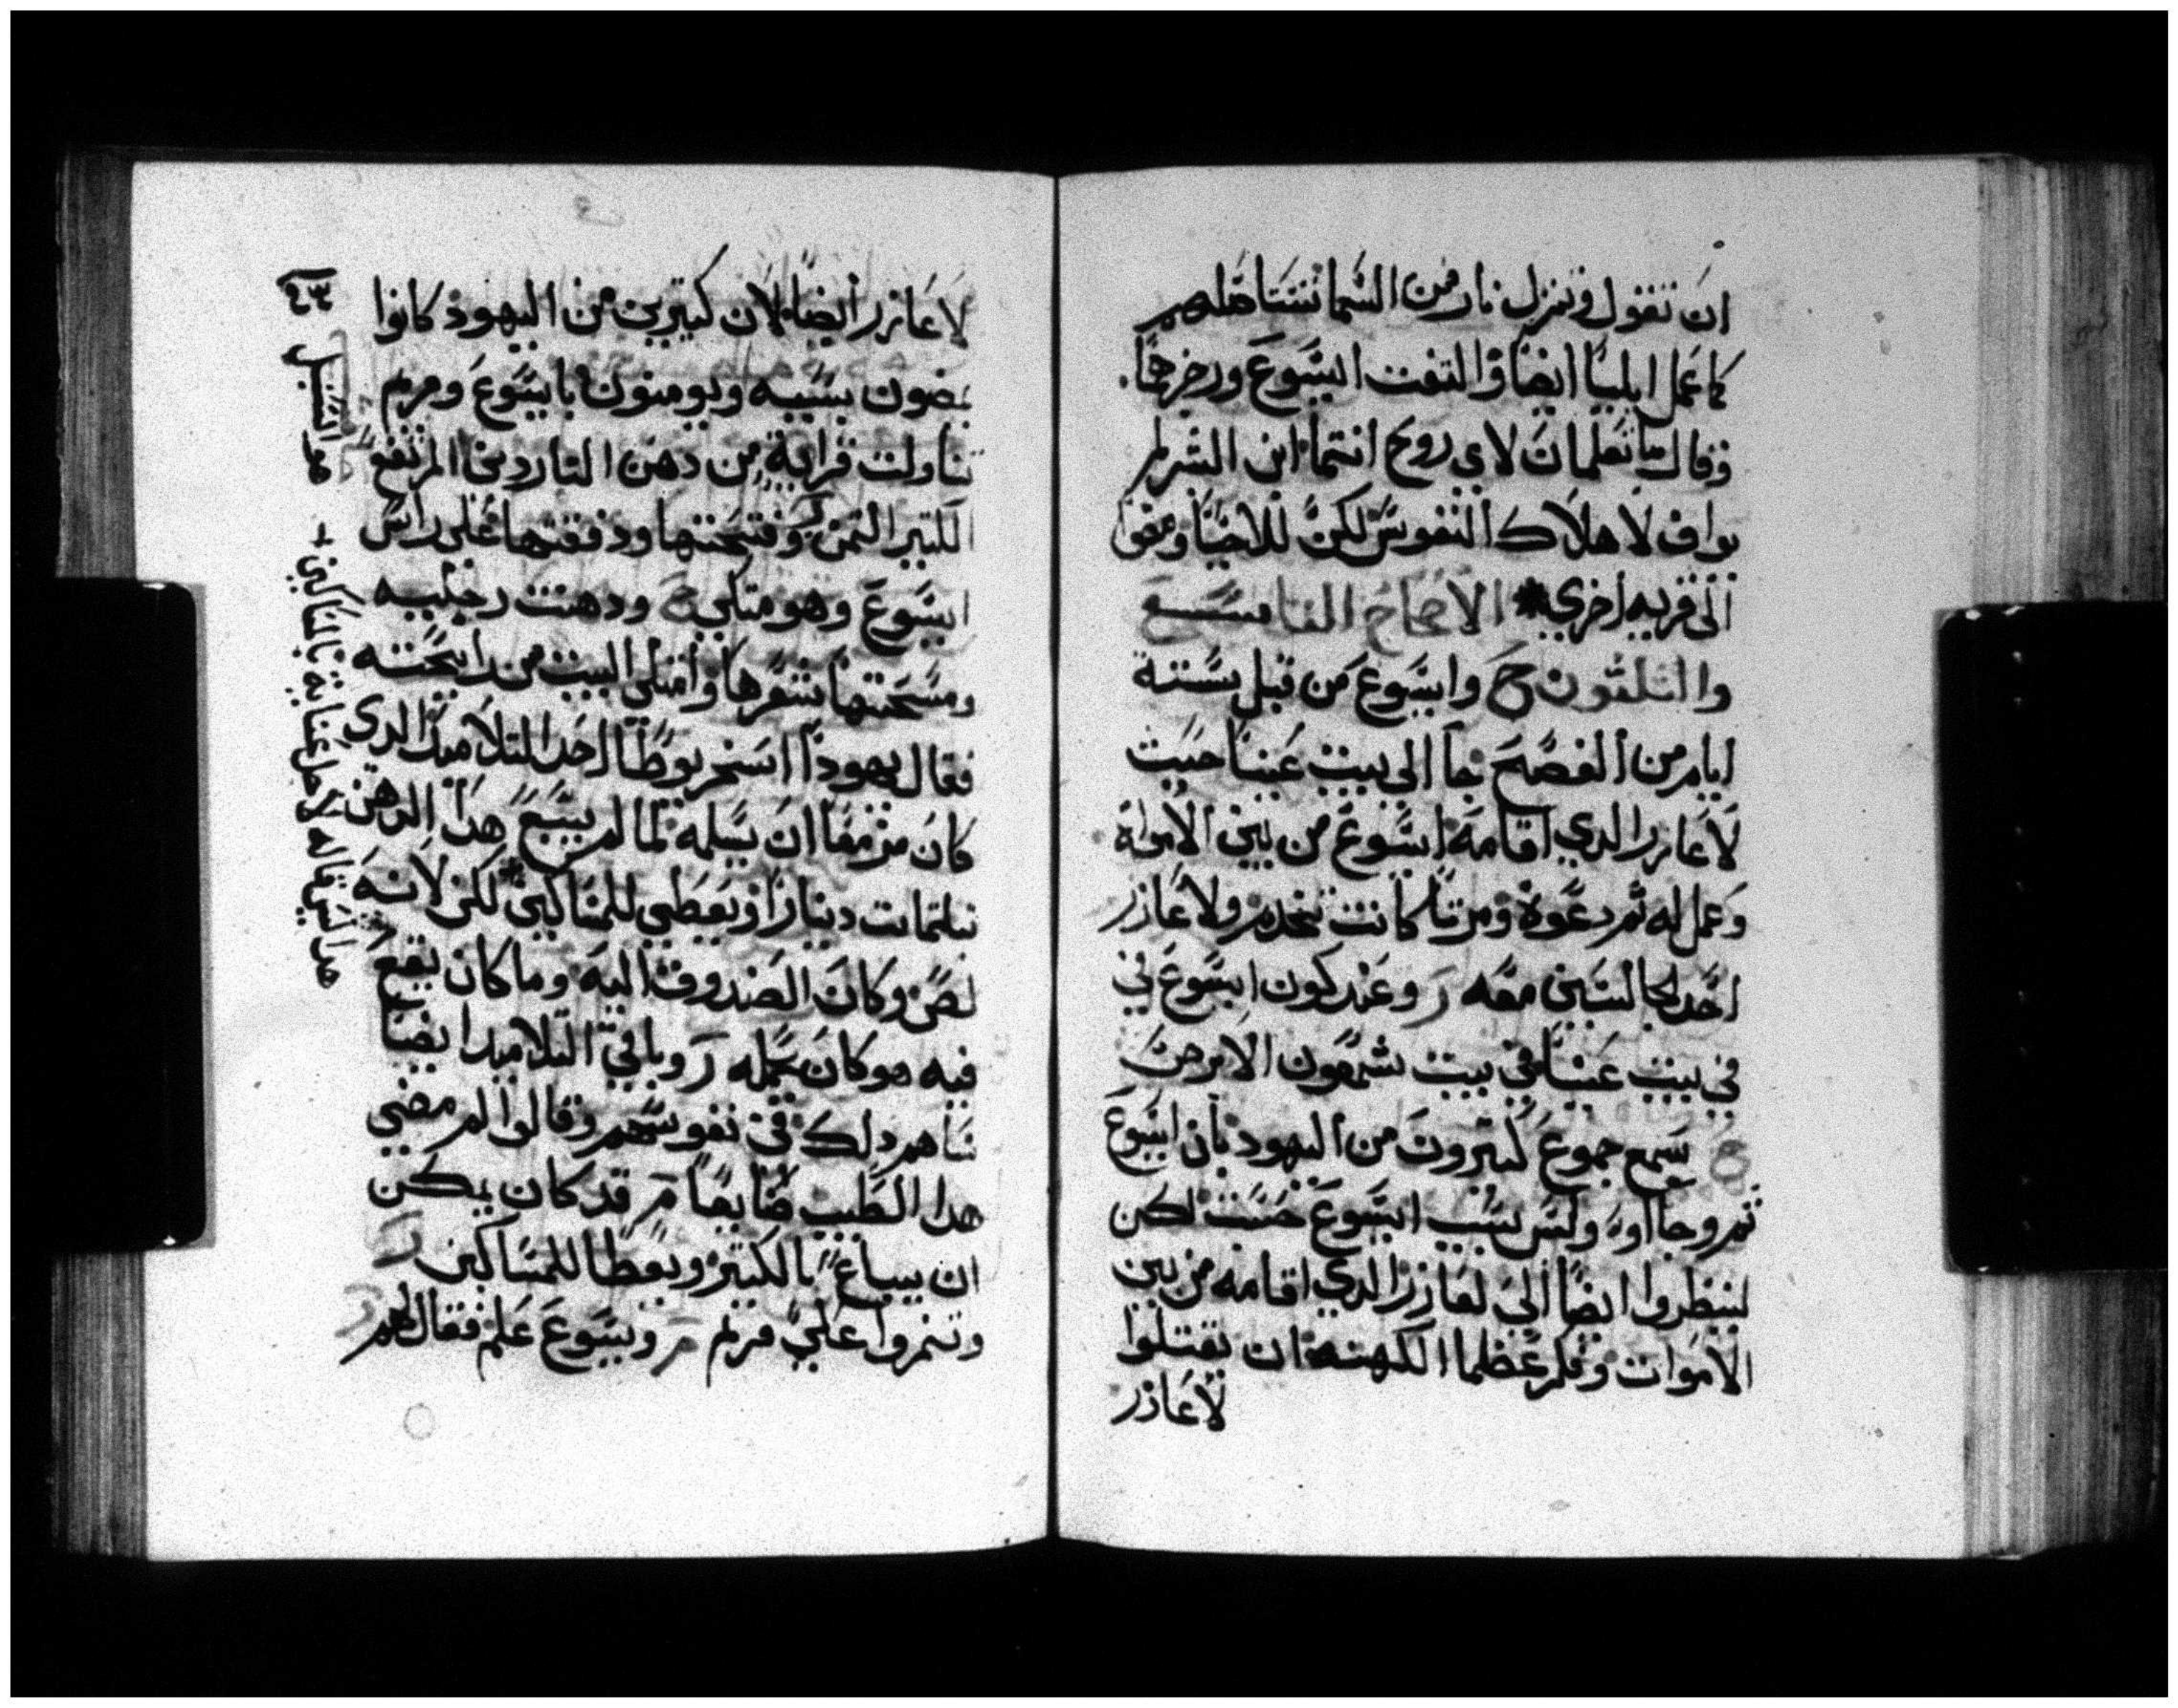 ان نقول وننزل نار من السما نستاهلهم
كما عمل ايليا ايضا والتفت ايسوع وزجرهما.
وقال ما تعلمان لاي روح انتما ابن البشر لم
يواف لاهلاك النفوس لكن للاحيا ومضوا
الى قريه اخري * الاصحاح التاسع
والتلثون ح وايسوع من قبل بستة
ايام من الفصح جا الي بيت عنيا حيت
لاعازر الدي اقامه ايسوع من بين الامواة
وعمل له ثم دعوة ومرتا كانت تخدم ولاعازر
احد الجالسين معه ر وعند كون ايسوع في
في بيت عنيا في بيت شمعون الابرص
سمع جموع كتيرون من اليهود بان ايسوع
ثم وجااوه وليس بسبب ايسوع حسب لكن
لينظروا ايضا الي لعازر الدي اقامه من بين
الاموات وفكر عظما الكهنه ان يقتلوا
لاعازر
لاعازر ايضا لان كتيرين من اليهود كانوا
يمضون بسببه ويومنون بايسوع ومريم
تناولت قرابة من دهن الناردين المرتفع
الكتير التمن وفتحتها ودفقتها على راس
ايسوع وهو متكي ودهنت رجليه
ومسحتها بشعرها وامتلى البيت من رايحته
فقال يهودا اسخريوطا احد التلاميد الدي
كان مزمعا ان يسلمه لما لم يبع هدا الدهن
بتلتمايت دينار ويعطي للمساكين لكن لانه
لص وكان الصندوق اليه وما كان يقع
فيه هو كان يحمله ر وباقي التلاميد ايضا
ساهم دلك في نفوسهم وقالوا لم مضي
هدا الطيب ضايعا مر قد كان يمكن
ان يباع بالكتير ويعطا للمساكين
وتنمروا علي مريم مر ويسوع علم فقال لهم
٤٣
هدا ليس قاله لاجل عناية بالمساكين